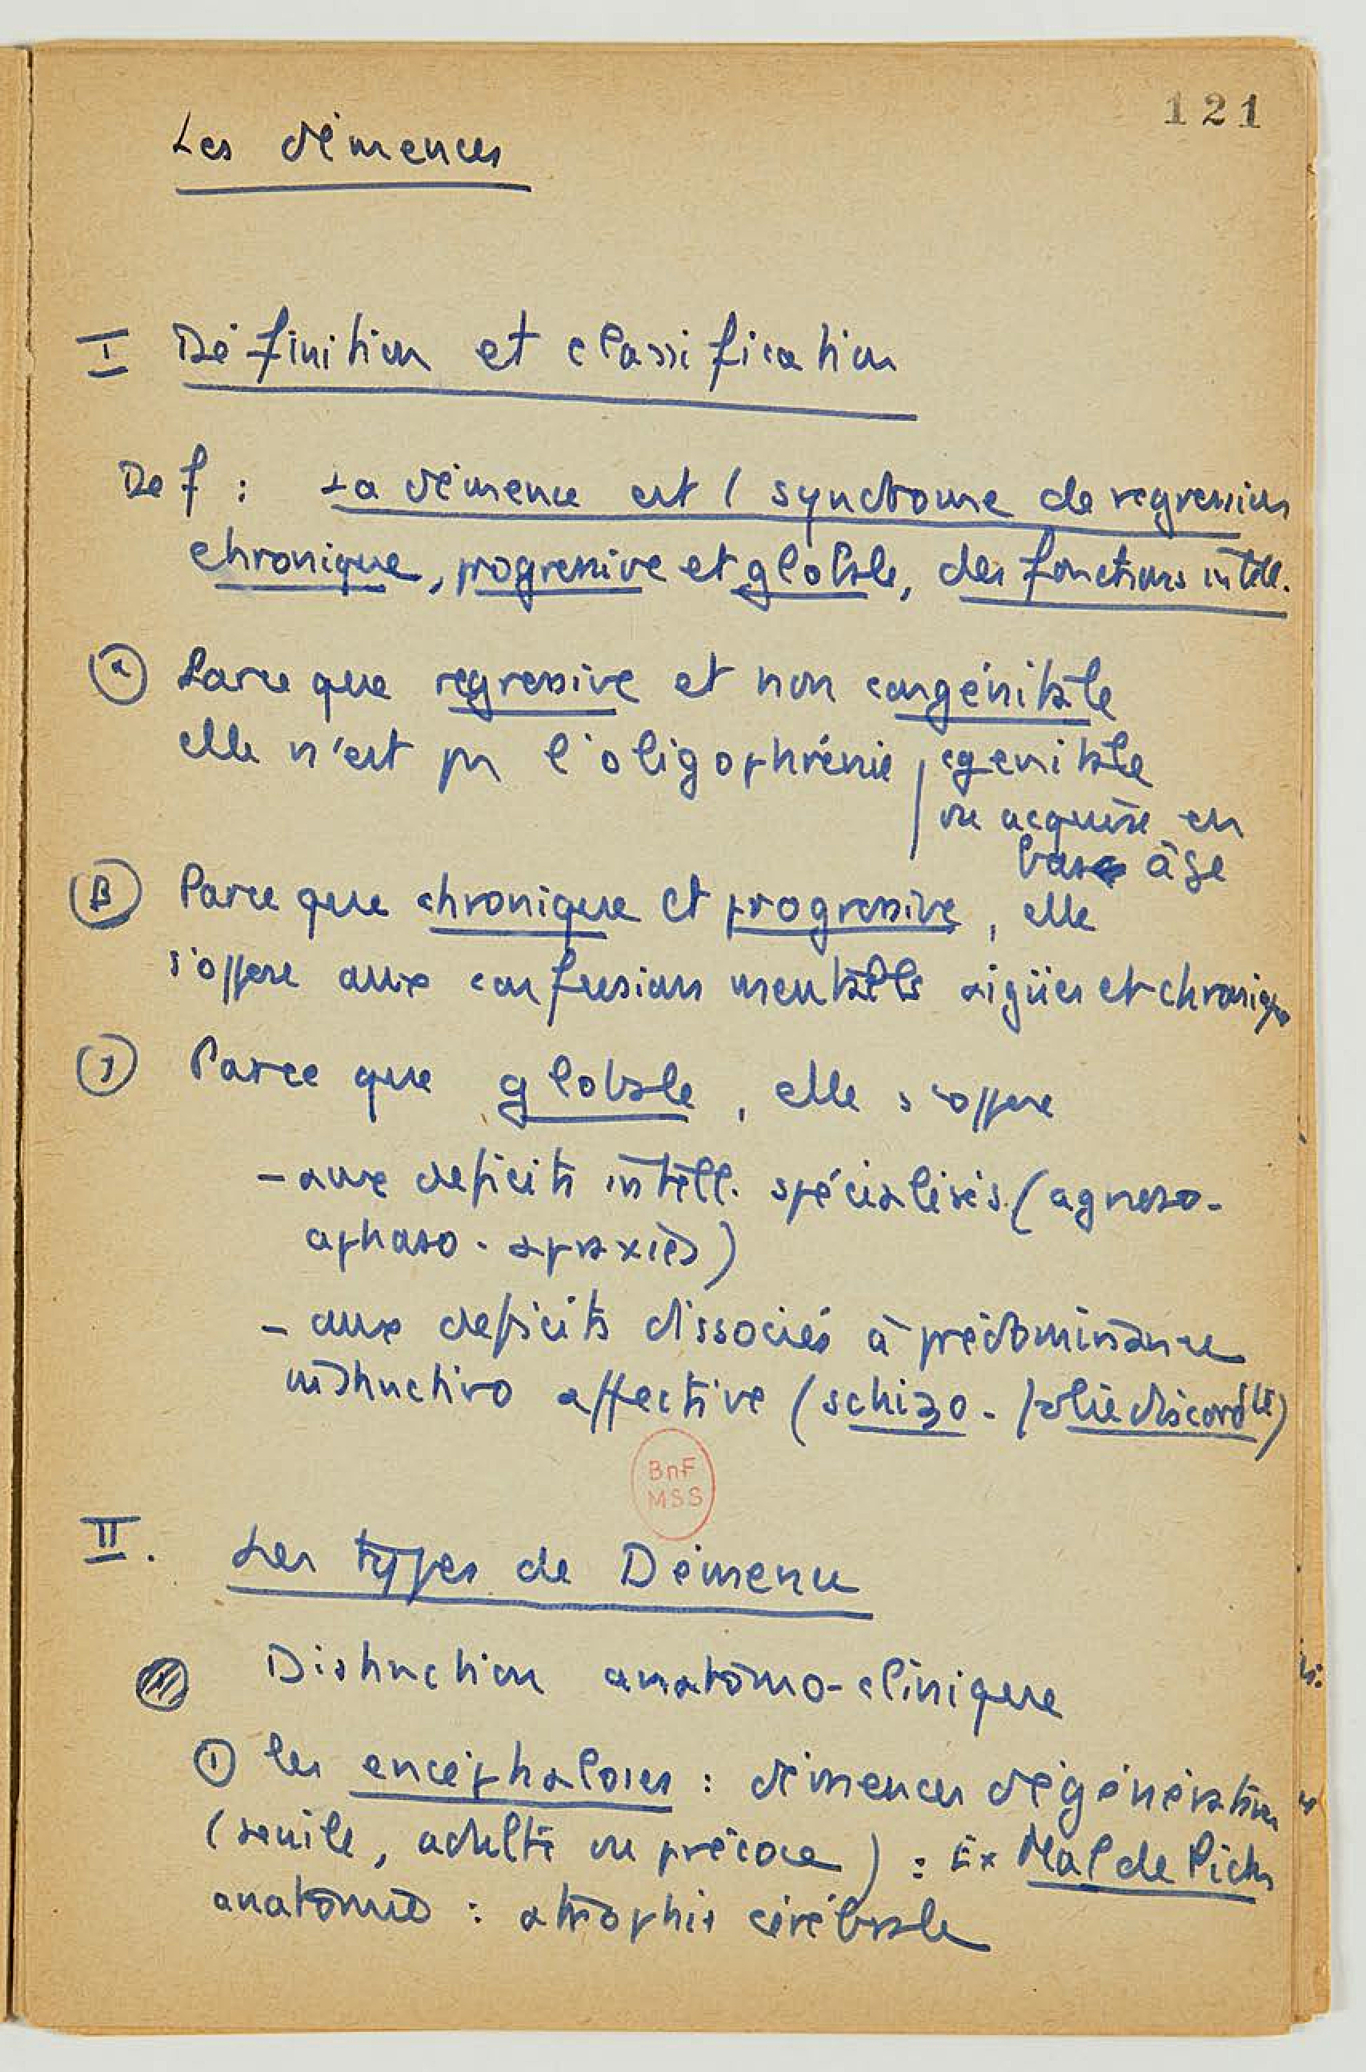 121
Les démences
I Définition et classification
Def : La démence est 1 syndrome de regression
chronique, progressive et globale, des fonctions intell.
α Parce que regressive et non congénitale
elle n'est pas l'oligophrénie / cgenitale
ou acquise en
bas âge
β Parce que chronique et progressive, elle
s'oppose aux confusions mentales aigües et chroniques
γ Parce que globale, elle s'oppose
- aux deficits intell. spécialisés (agnoso-
aphaso - apraxies)
- aux deficits dissociés à prédominance
instinctivo affective (schizo - folie discordte)
BnF
MSS
II. Les types de Démence
Distinction anatomo-clinique
① les encéphaloses : démences dégénératives
(sénile, adulte ou précoce) : Ex Mal de Pick
anatomie : atrophie cérébrale